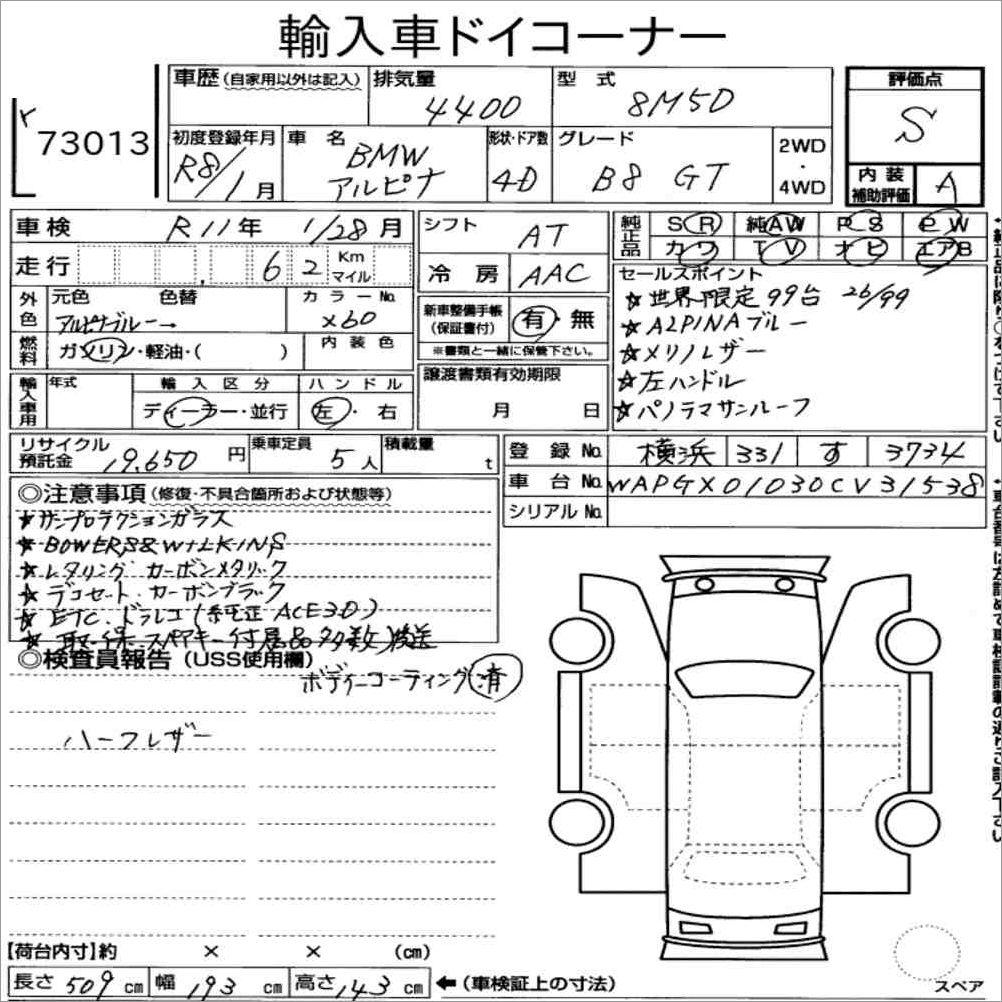 輸入車ドイコーナー
73013
車歴(自家用以外は記入) 排気量 4400 型式 8M5D 評価点 S
初度登録年月 R8/1月 車名 BMW アルピナ 形状・ドア数 4D グレード B8 GT 2WD・4WD
内装補助評価 A
車検 R11年 1/28月 シフト AT 純正品 SR 純AW PS PW
走行 62 Km マイル 冷房 AAC カワ TV オヒ エアB
外色 元色 色替 カラーNo. アルピナブルー→ X60
新車整備手帳(保証書付) 有・無
※書類と一緒に保管下さい。
燃料 ガソリン・軽油・( ) 内装色
輸入車用 年式 輸入区分 ハンドル
ディーラー・並行 左・右
譲渡書類有効期限 月 日
セールスポイント
☆世界限定99台 26/99
☆ALPINAブルー
☆メリノレザー
☆左ハンドル
☆パノラマサンルーフ
リサイクル預託金 19,650円 乗車定員 5人 積載量 t
登録No. 横浜 331 す 3734
車台No. WAPGX01030CV31538
シリアルNo.
◎注意事項(修復・不具合箇所および状態等)
☆サンプロテクションガラス
☆BOWERS&WILKINS
☆レタリング カーボンメタリック
☆デコセット・カーボンブラック
☆ETC.ドラレコ(純正ACE3.0)
☆取・保・スペアキー付属品多数後送
◎検査員報告(USS使用欄)
ボディーコーティング済
ハーフレザー
【荷台内寸】約 × × (cm)
長さ 509 cm 幅 193 cm 高さ 143 cm ←(車検証上の寸法)
スペア